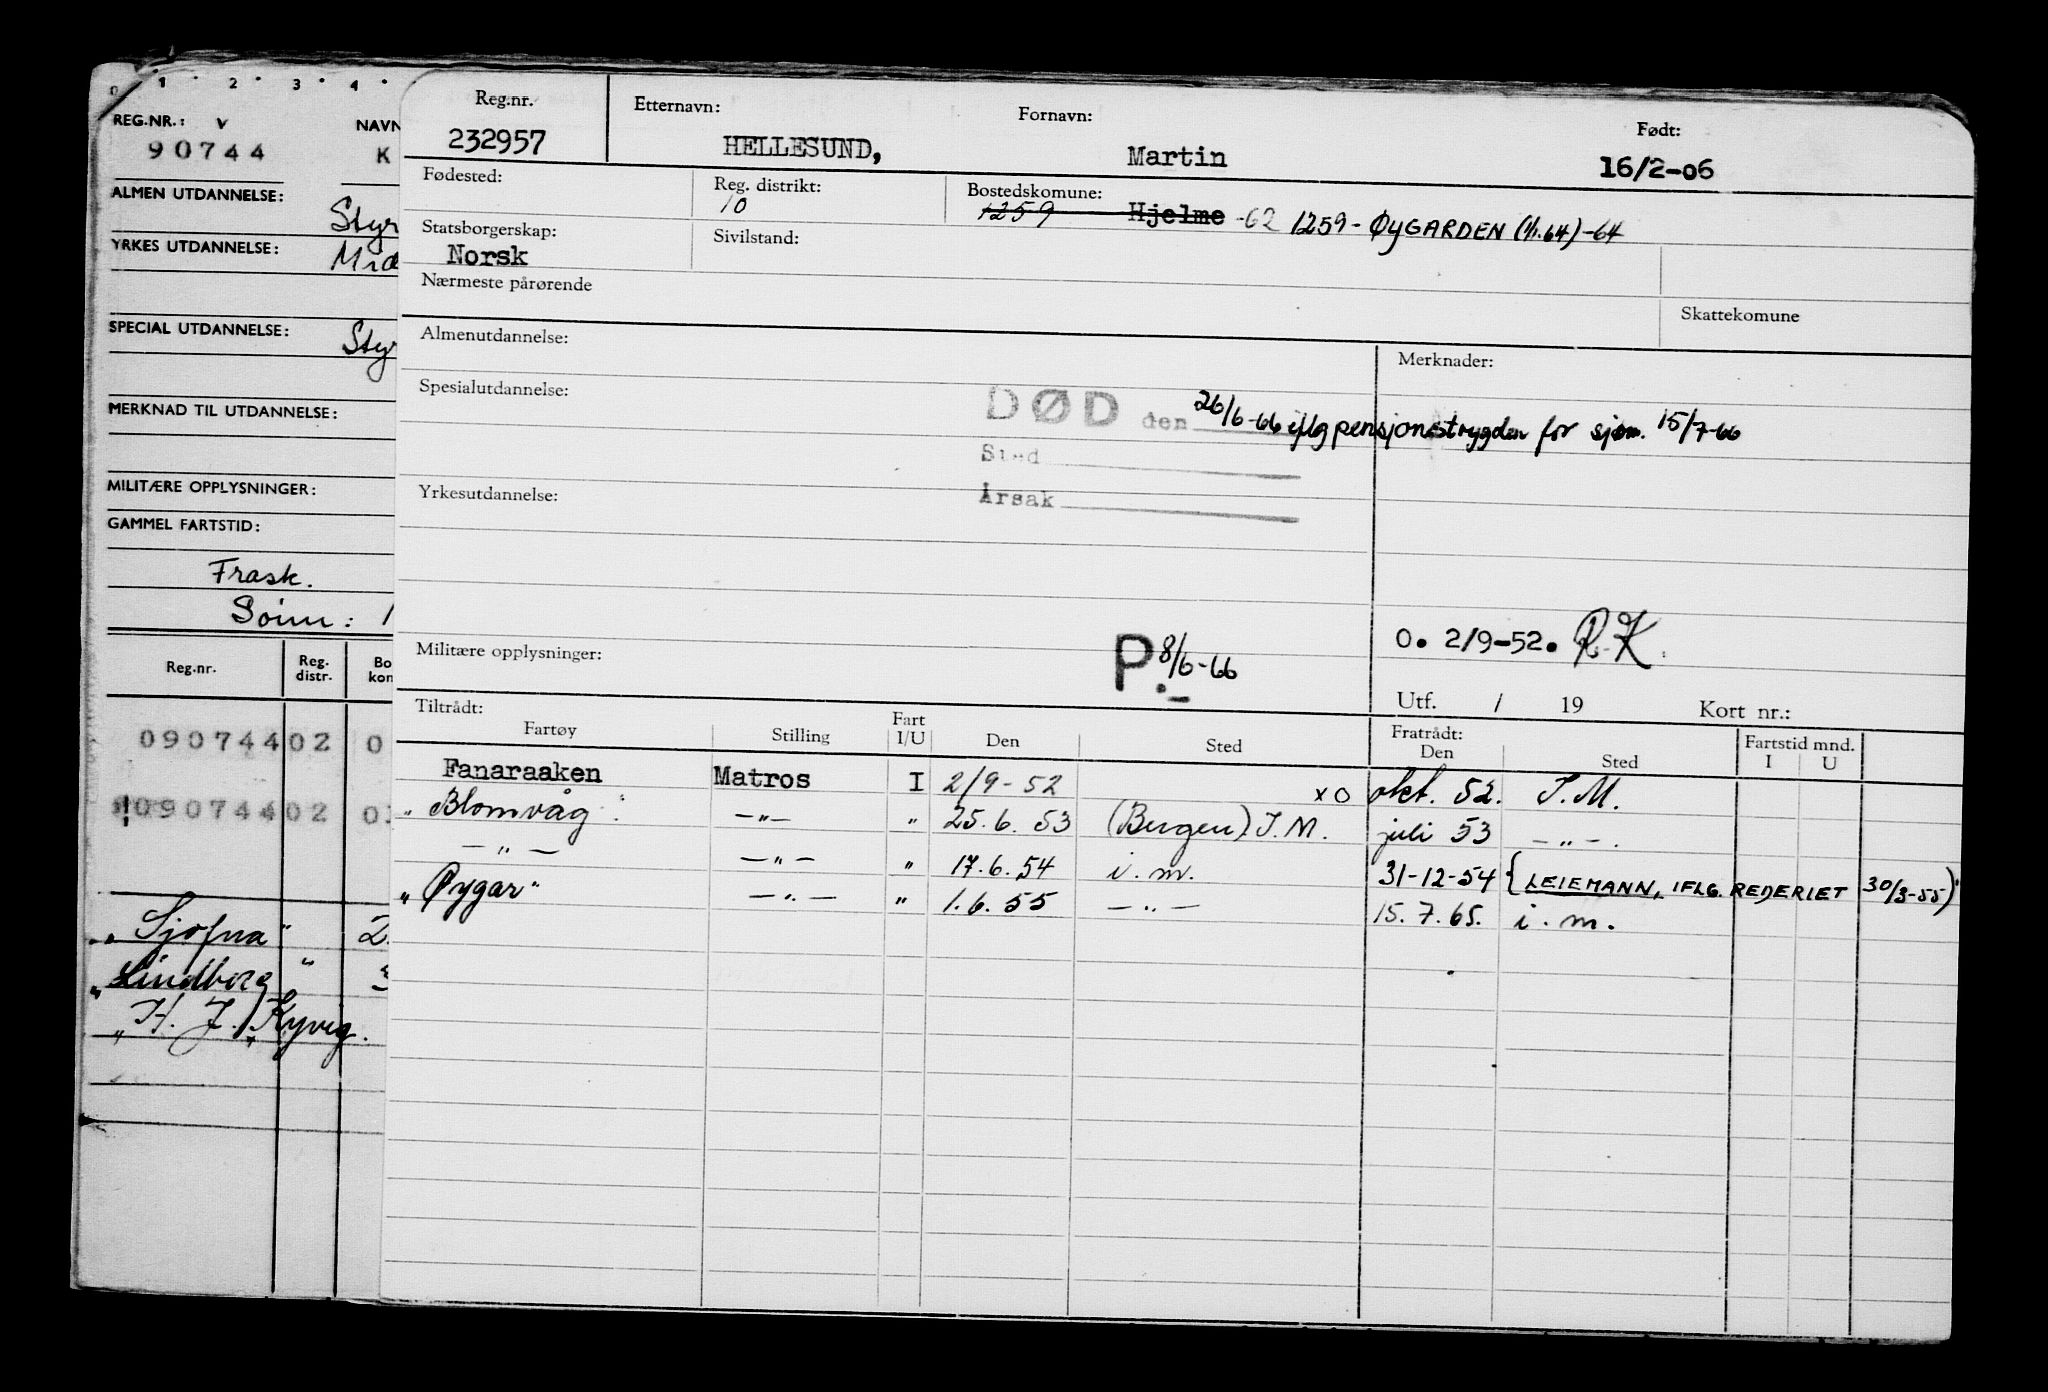 0 1 2 3 4
REG.NR.: v NAVN
90744 K
ALMEN UTDANNELSE:
Styr
YRKES UTDANNELSE:
SPECIAL UTDANNELSE:
Styr
MERKNAD TIL UTDANNELSE:
MILITÆRE OPPLYSNINGER:
GAMMEL FARTSTID:
Frask.
Soim: 1
Reg.nr. Reg. distr. Bo kon
090744 02 0
090744 02 0
"Sjofna"
"Lindborg"
"H. J. Kyvig.
Reg.nr. Etternavn: Fornavn: Født:
232957 HELLESUND, Martin 16/2-06
Fødested: Reg. distrikt: Bostedskomune:
10 1259 Hjelme -62 1259 - ØYGARDEN (1/1.64) -64
Statsborgerskap: Sivilstand:
Norsk
Nærmeste pårørende
Skattekomune
Almenutdannelse: Merknader:
Spesialutdannelse:
DØD den 26/6-66 iflg pensjonstrygden for sjøm. 15/7-66
Sted
Yrkesutdannelse: Årsak
O. 2/9-52. R.K.
Militære opplysninger: P. 8/6-66
Utf. / 19 Kort nr.:
Tiltrådt: Fratrådt: Fartstid mnd.
Fartøy Stilling Fart I/U Den Sted Den Sted I U
Fanaraaken Matros I 2/9-52 xo okt. 52. I.M.
"Blomvåg" —"— " 25.6.53 (Bergen) I.M. juli 53 —"—.
—"— —"— " 17.6.54 i.m. 31-12-54 (LEIEMANN, IFLG. REDERIET 30/3-55)
"Øygar" —"— " 1.6.55 —"— 15.7.65. i.m.